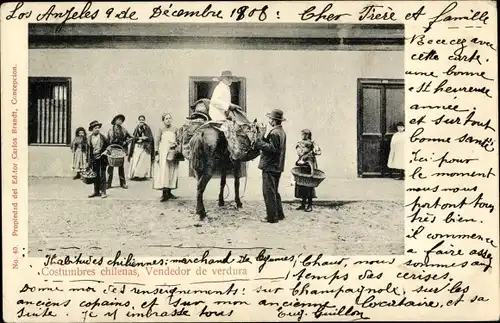 Los Angeles 9 de Décembre 1806 : Cher Frère et famille
Recevez avec
cette carte,
une bonne
année,
et surtout
bonne santé
Ici pour
le moment
nous nous
portons tous
très bien.
il commence
a faire assez
Habitudes chiliennes: marchand de legumes, Chaud, nous sommes au
temps des cerises.
Costumbres chilenas, Vendedor de verdura
Donne moi des renseignements: sur Champagnole, sur les
anciens copains, et sur mon ancienne locataire, et sa
suite. Je vous embrasse tous
Eug. Guillon
No. 40. Propiedad del Editor Carlos Brandt, Concepcion.